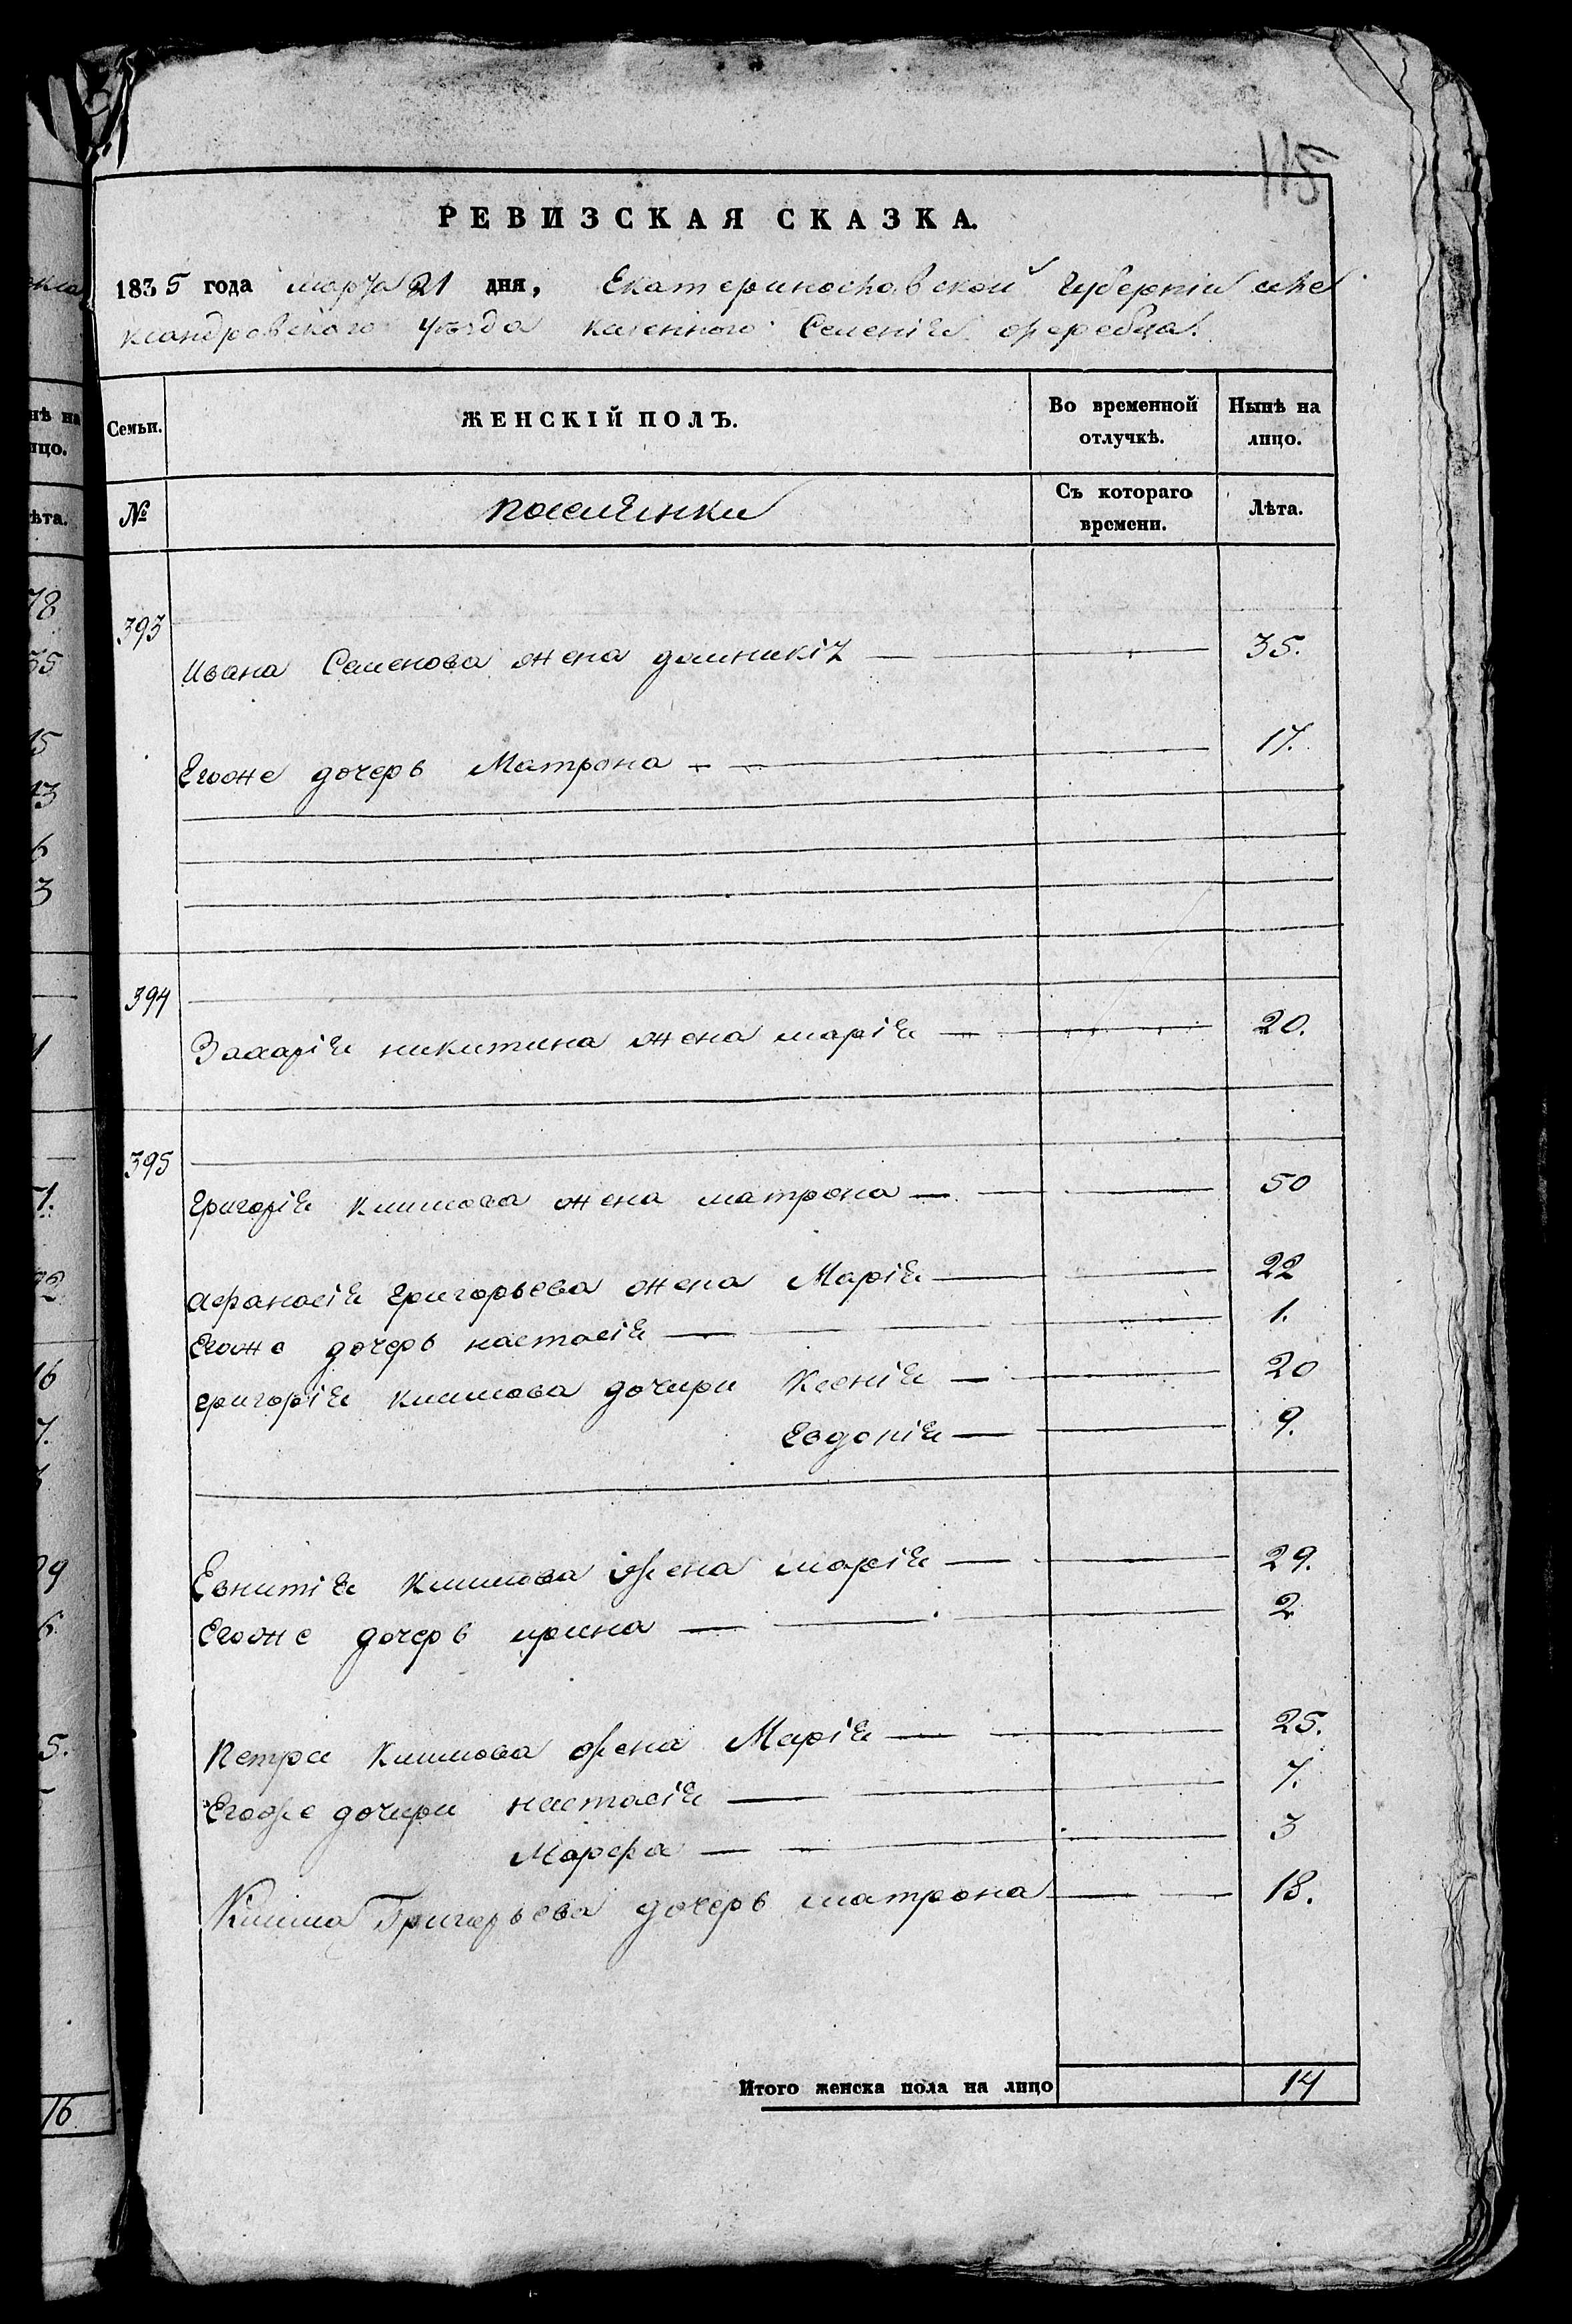 115
РЕВИЗСКАЯ СКАЗКА.
1835 года марта 21 дня, Екатеринославской Губерніи але
ксандровского уѣзда казенного Селенія жеребца.
Семьи. ЖЕНСКІЙ ПОЛЪ. Во временной отлучкѣ. Нынѣ на лицо.
№ поселянки Съ котораго времени. Лѣта.
393
Ивана Семенова жена домникія 35.
Егоже дочерь Матрона 17.
394
Захарія никитина жена марія 20.
395
григорія климова жена матрона 50
афанасія григорьева жена Марія 22
Егоже дочерь настасія 1.
григорія климова дочери Ксенія 20
Евдокія 9.
Евнитія климова жена марія 29.
Егоже дочерь ирина 2
Петра климова жена Марія 25.
Егоже дочери настасія 7.
Марфа 3
Клима Григорьева дочерь матрона 18.
Итого женска пола на лицо 14
нѣ на
ицо.
ѣта.
78
55
15
13
6
3
16
7.
5.
16